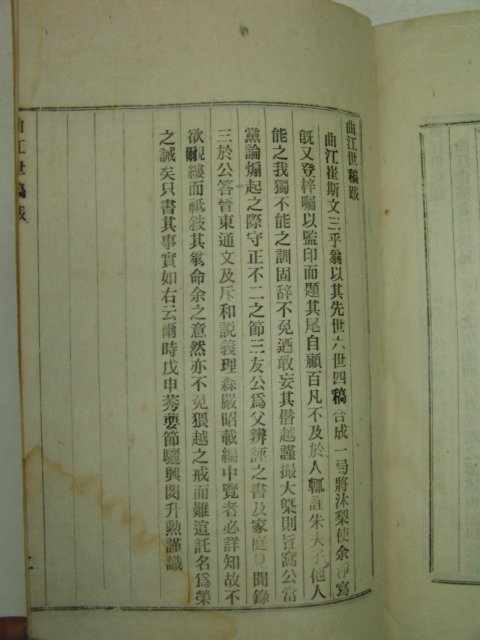 曲江世稿跋
曲江崔斯文三乎翁以其先世六世四稿合成一局將沐梨使余淨寫
旣又登梓囑以監印而題其尾自顧百凡不及於人輒誼朱夫子他人
能之我獨不能之訓固辞不免迺敢妄其僭越謹撮大槩則旨窩公當
黨論煽起之際守正不二之節三友公爲父辨誣之書及家庭見聞錄
三於公答晉東通文及斥和説義理森嚴昭載編中覽者必詳知故不
欲覼縷而祗敍其翁命余之意然亦不免猥越之戒而難這託名爲榮
之誠矣只書其事實如右云爾時戊申莠葽節驪興閔升勲謹識
曲江世稿跋